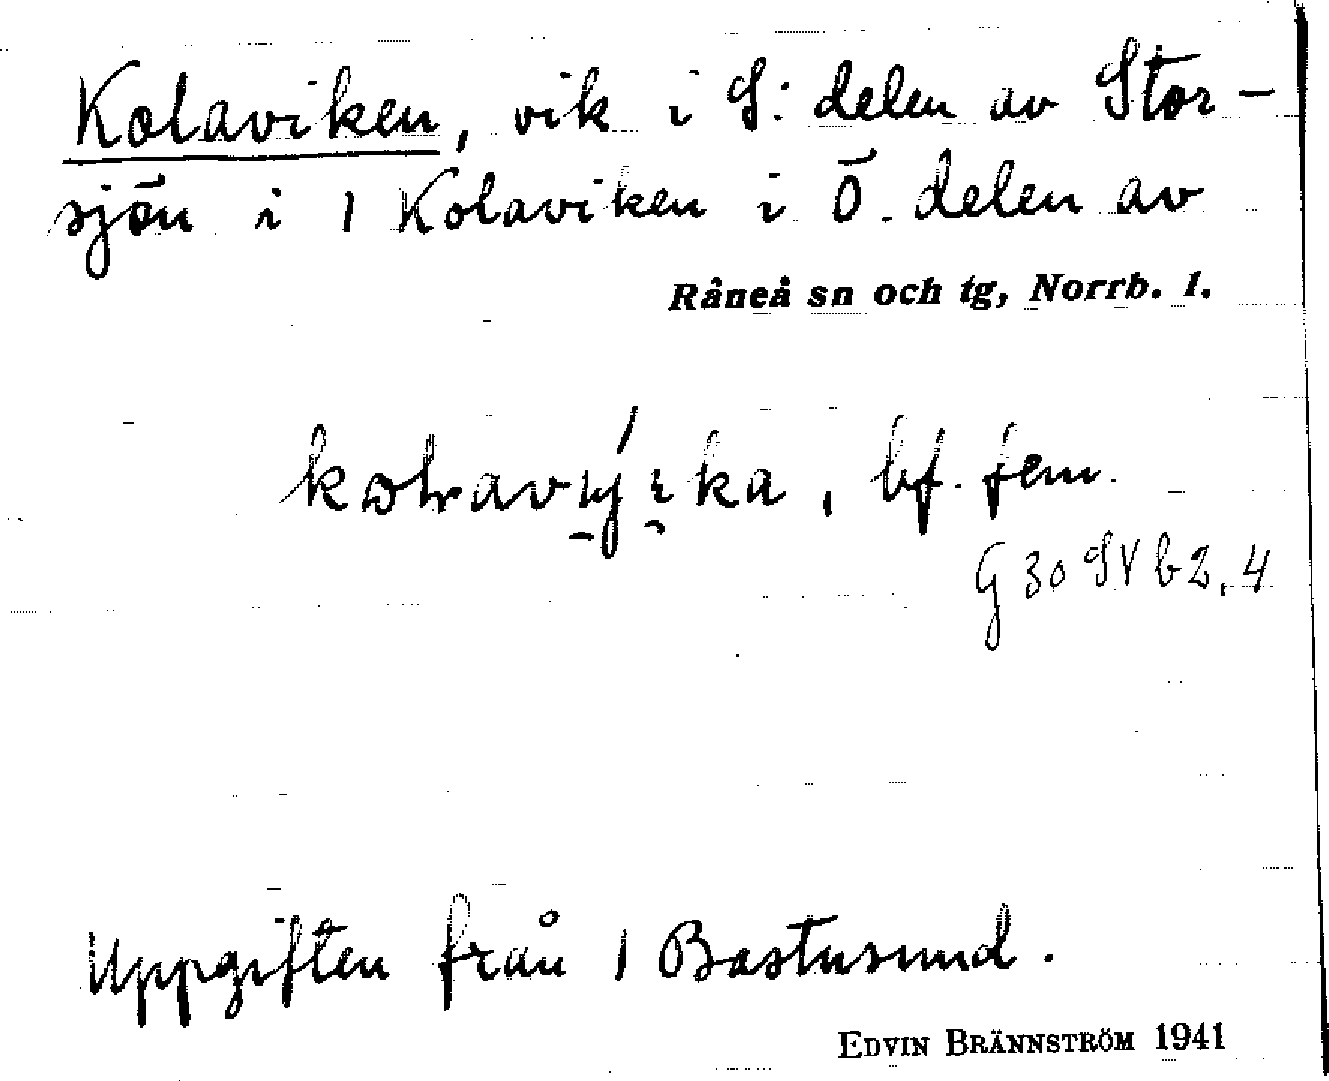 Kolaviken, vik i S: delen av Stor-
sjön i 1 Kolaviken i Ö. delen av
Råneå sn och tg, Norrb. l.
bf. fem.
G 30 SV b 2, 4
Uppgiften från 1 Bastusund.
EDVIN BRÄNNSTRÖM 1941